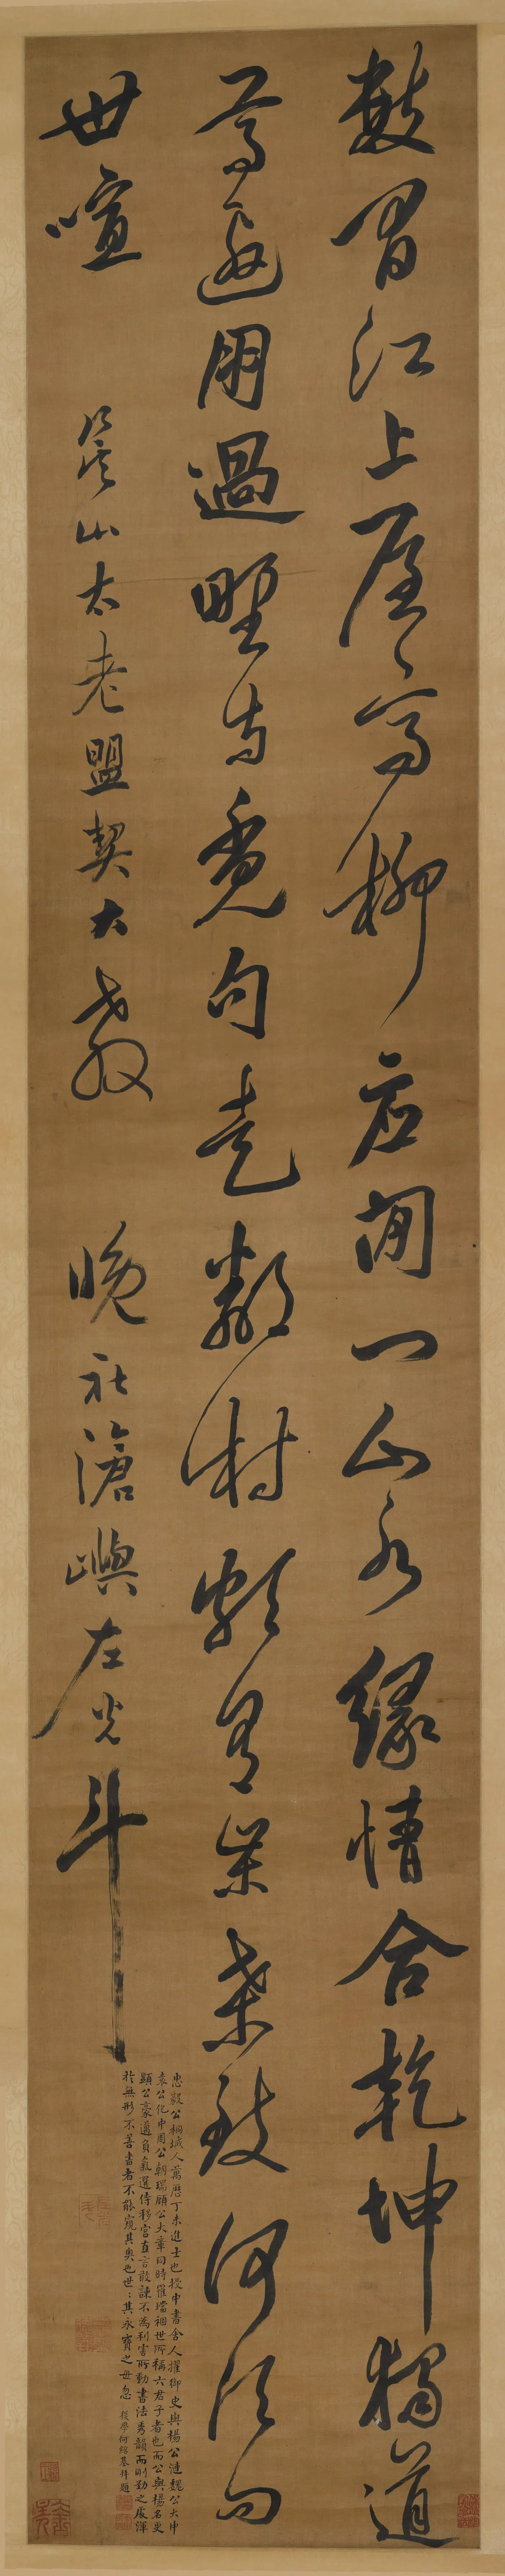 數間江上屋高柳應閉門山水緣情合乾坤獨道
尊適用過野寺覓句走鄰村頗有柴桑致何須向
世喧
笑山太老盟契大教
晚社滄嶼左光斗
忠毅公桐城人萬曆丁未進士也授中書舍人擢御史與楊公漣魏公大中
袁公化中周公朝瑞顧公大章同時罹璫禍世所稱六君子者也而公與楊名更
顯公豪邁負氣選侍移宮直言敢諫不為利害所動書法秀韻而剛勁之度渾
於無形不善書者不能窺其奧也世〻其永寶之毋忽 後學何紹基拜題